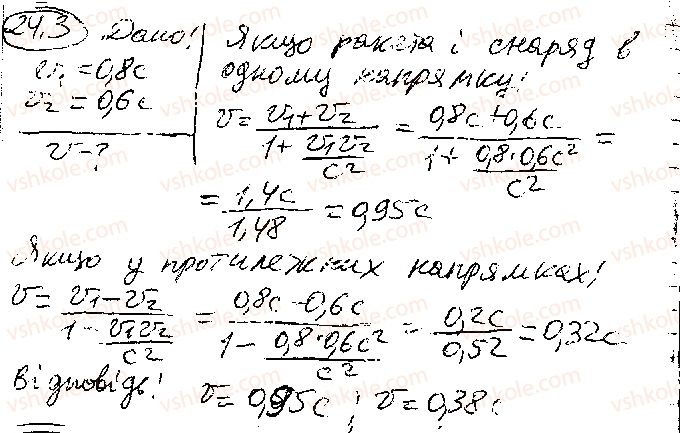 24.3 Дано:
v₁ = 0,8c
v₂ = 0,6c
v - ?
Якщо ракета і снаряд в
одному напрямку:
v = (v₁ + v₂)/(1 + v₁v₂/c²) = (0,8c + 0,6c)/(1 + 0,8·0,6c²/c²) =
= 1,4c/1,48 = 0,95c
Якщо у протилежних напрямках:
v = (v₁ - v₂)/(1 - v₁v₂/c²) = (0,8c - 0,6c)/(1 - 0,8·0,6c²/c²) = 0,2c/0,52 = 0,32c
Відповідь: v = 0,95c ; v = 0,38c